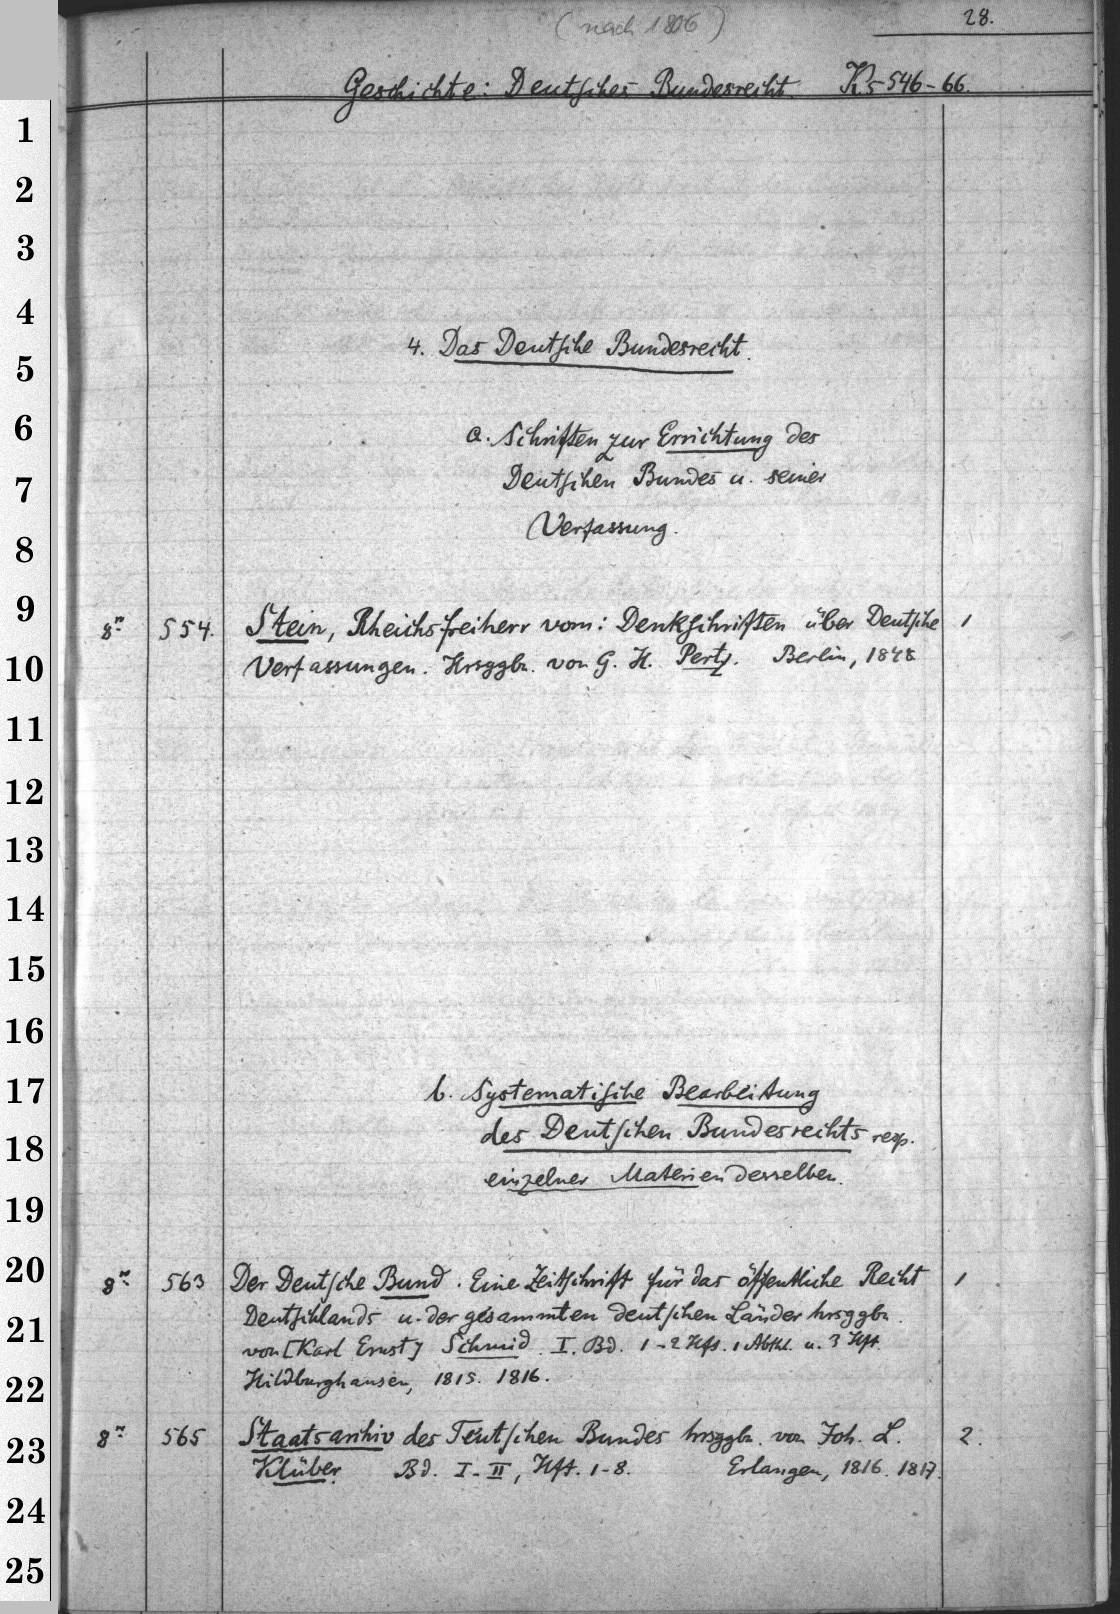 (nach 1806)
28.
Geschichte: Deutsches Bundesrecht. K 5 546-66.
4. Das Deutsche Bundesrecht.
a. Schriften zur Errichtung des
Deutschen Bundes u. seiner
Verfassung.
8º 554. Stein, Rheichsfreiherr vom: Denkschriften über Deutsche 1
Verfassungen. Hrsggbn. von G. H. Pertz. Berlin, 1848
b. Systematische Bearbeitung
des Deutschen Bundesrechts resp.
einzelner Materien desselben.
8º 563 Der Deutsche Bund. Eine Zeitschrift für das öffentliche Recht 1
Deutschlands u. der gesammten deutschen Länder hrsggbn.
von [Karl Ernst] Schmid. I. Bd. 1-2 Hft. 1 Abthl. u. 3 Hft.
Hildburghausen, 1815. 1816.
8º 565 Staatsarchiv des Teutschen Bundes hrsggbn. von Joh. L. 2.
Klüber. Bd. I-II, Hft. 1-8. Erlangen, 1816. 1817.
1
2
3
4
5
6
7
8
9
10
11
12
13
14
15
16
17
18
19
20
21
22
23
24
25